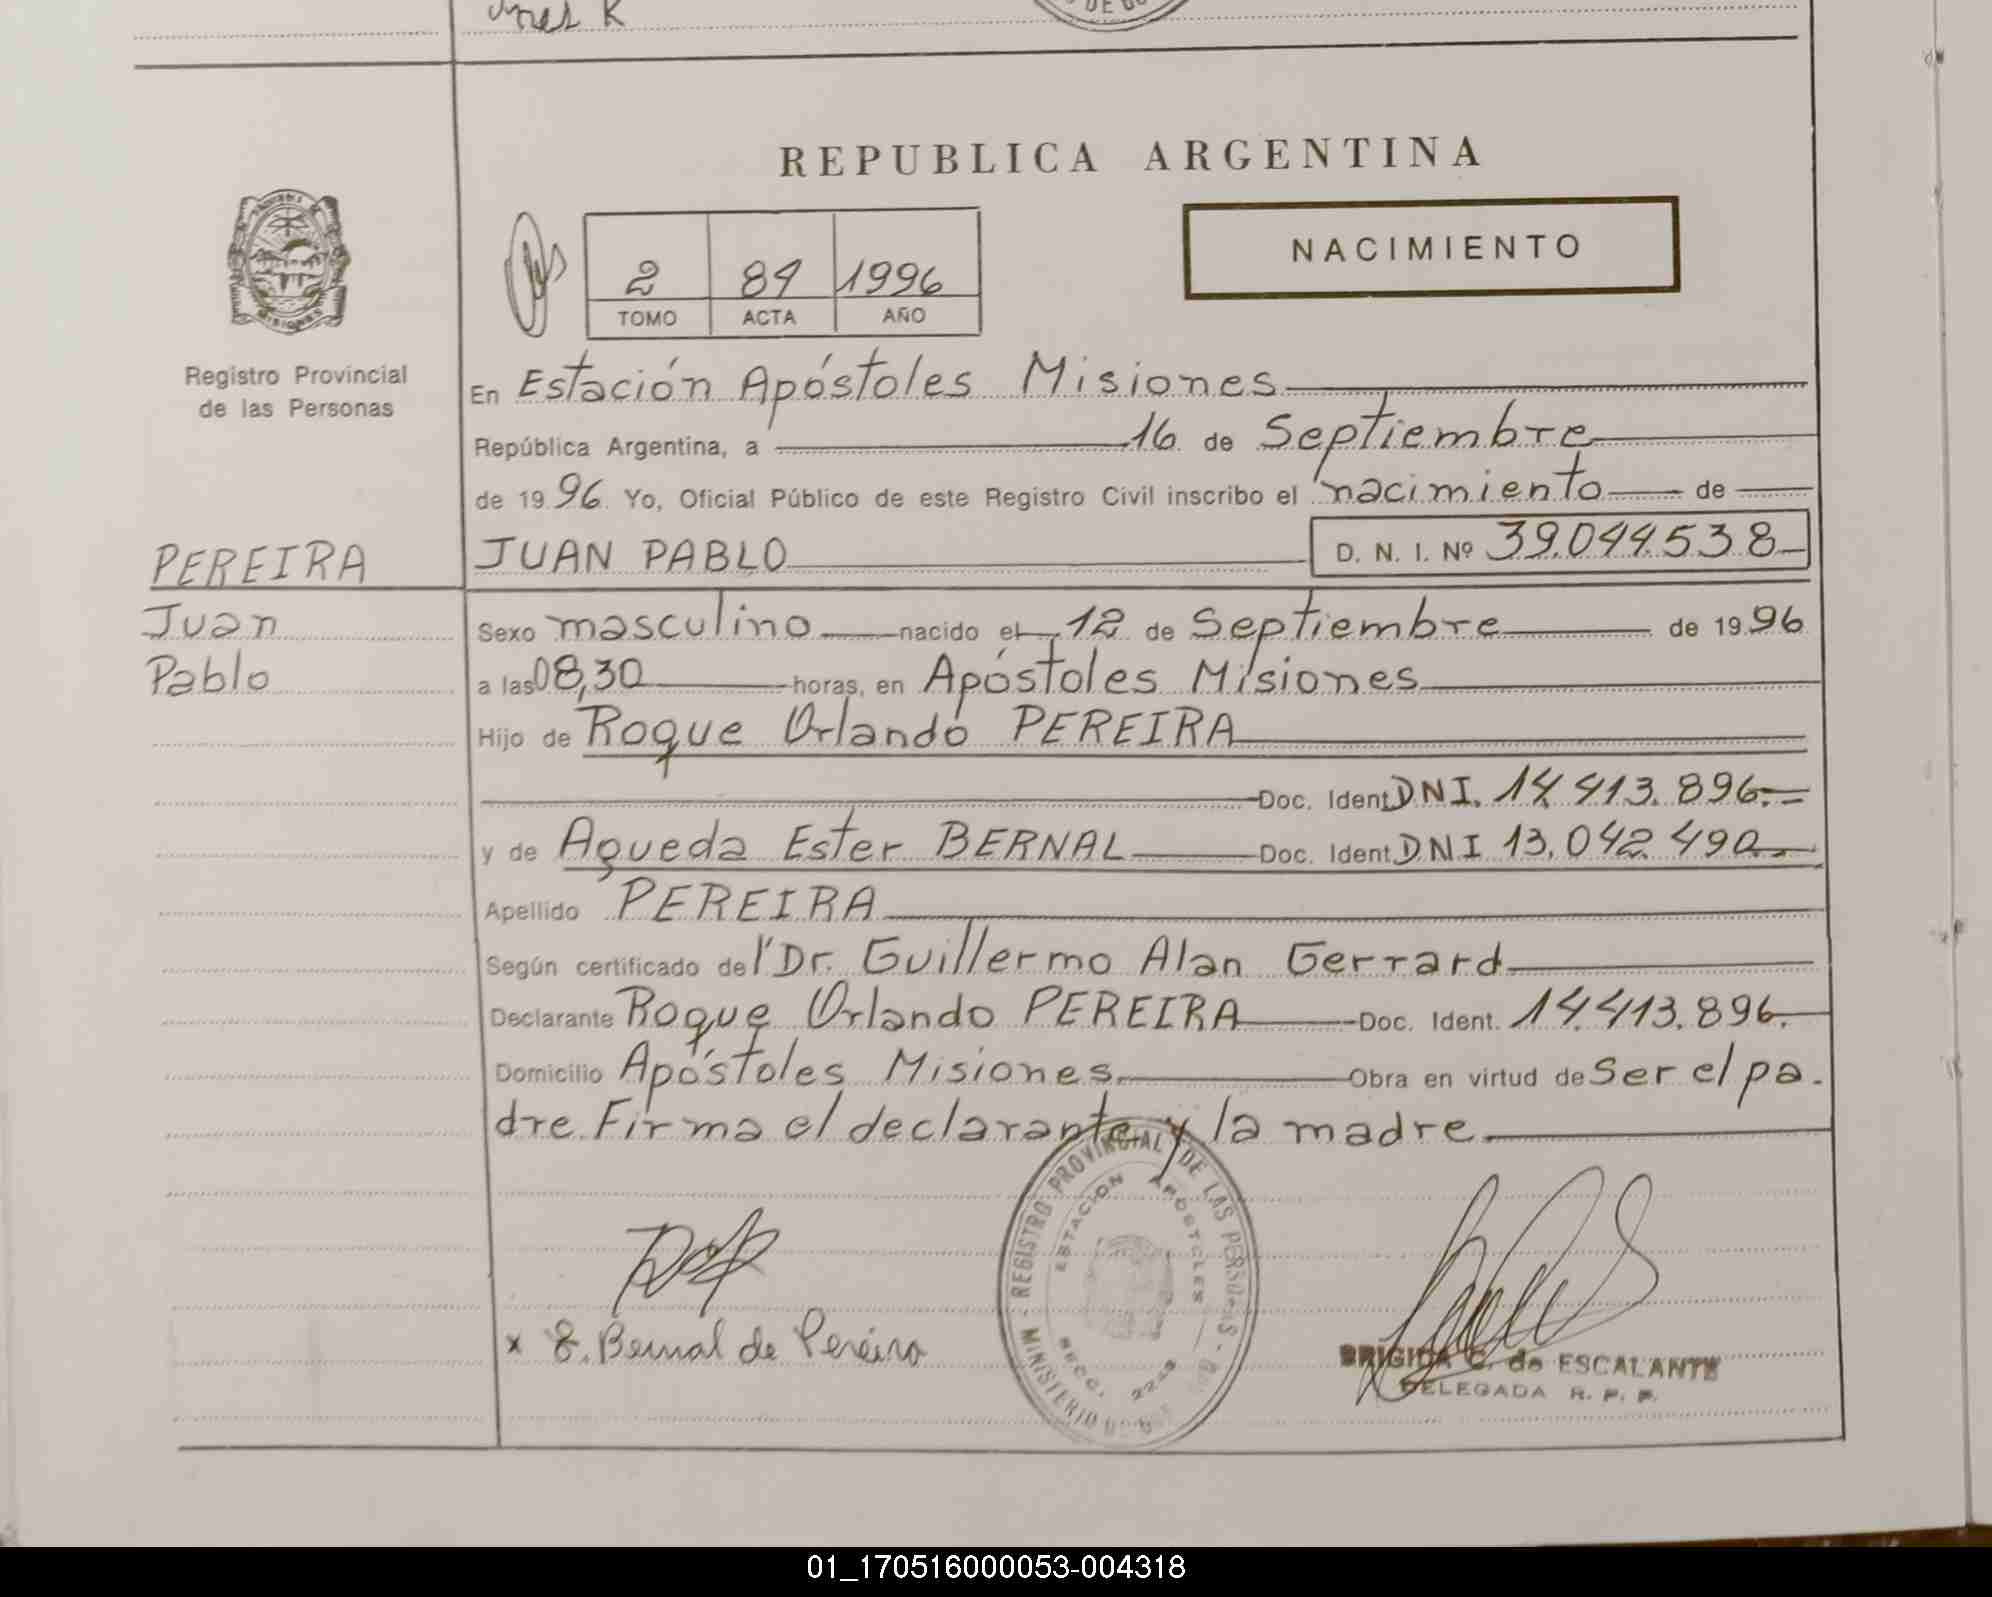 Ines K
REPUBLICA ARGENTINA
NACIMIENTO
2 84 1996
TOMO ACTA AÑO
MISIONES
Registro Provincial
de las Personas
En Estación Apóstoles Misiones
República Argentina, a 16 de Septiembre
de 1996 Yo, Oficial Público de este Registro Civil inscribo el nacimiento de
PEREIRA JUAN PABLO D. N. I. Nº 39.044.538
Juan
Pablo
Sexo masculino nacido el 12 de Septiembre de 1996
a las 08,30 horas, en Apóstoles Misiones
Hijo de Roque Orlando PEREIRA
Doc. Ident DNI. 14.413.896.=
y de Agueda Ester BERNAL Doc. Ident DNI 13.042.490.
Apellido PEREIRA
Según certificado del Dr. Guillermo Alan Gerrard
Declarante Roque Orlando PEREIRA Doc. Ident. 14.413.896.
Domicilio Apóstoles Misiones Obra en virtud de Ser el pa-
dre. Firma el declarante y la madre
REGISTRO PROVINCIAL DE LAS PERSONAS
ESTACION APOSTOLES
SECC. 2243
MINISTERIO
x E. Bernal de Pereira
BRIGIDA C. de ESCALANTE
DELEGADA R. P. P.
01_170516000053-004318